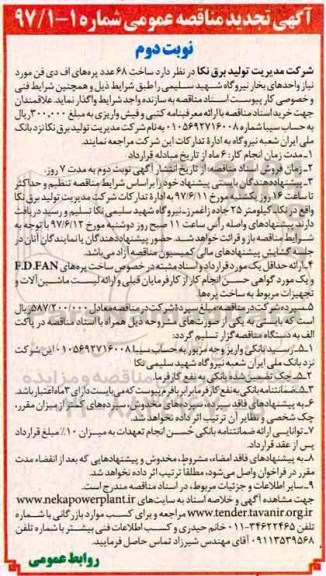 آگهی تجدید مناقصه عمومی شماره ۱-۹۷/۱
نوبت دوم
شرکت مدیریت تولید برق نکا در نظر دارد ساخت ۶۸ عدد پره‌های اف دی فن مورد
نیاز واحدهای بخار نیروگاه شهید سلیمی را طبق شرایط ذیل و همچنین شرایط فنی
و خصوصی کار پیوست اسناد مناقصه به سازنده واجد شرایط واگذار نماید. علاقمندان
جهت خرید اسناد مناقصه با ارائه معرفینامه کتبی و فیش واریزی به مبلغ ۳۰۰٫۰۰۰ ریال
به حساب سیبا شماره ۰۱۰۵۶۹۲۷۱۶۰۰۸ به نام شرکت مدیریت تولید برق نکا نزد بانک
ملی ایران شعبه نیروگاه به اداره تدارکات این شرکت مراجعه نمایند.
۱ـ مدت زمان انجام کار: ۶ ماه از تاریخ مبادله قرارداد
۲ـ زمان فروش اسناد مناقصه: از تاریخ انتشار آگهی نوبت دوم به مدت ۷ روز.
۳ـ پیشنهاددهندگان بایستی پیشنهاد خود را براساس شرایط مناقصه تنظیم و حداکثر
تا ساعت ۱۶ روز یکشنبه مورخ ۹۷/۶/۱۱ به اداره تدارکات شرکت مدیریت تولید برق نکا
واقع در یک کیلومتر ۲۵ جاده زاغمرز ـ نیروگاه شهید سلیمی نکا تسلیم و رسید دریافت
دارند. پیشنهادهای واصله رأس ساعت ۱۱ صبح روز دوشنبه مورخ ۹۷/۶/۱۲ با توجه به
شرایط مناقصه باز و قرائت خواهد شد. حضور پیشنهاددهندگان یا نمایندگان آنان در
جلسه گشایش پیشنهادهای مالی کمیسیون مناقصه آزاد می‌باشد.
۴ـ ارائه حداقل یک مورد قرارداد و اسناد مثبته در خصوص ساخت پره‌های F.D.FAN
و یک مورد گواهی حسن انجام کار از کارفرمایان قبلی و ارائه لیست ماشین آلات و
تجهیزات مربوط به ساخت پره‌ها
۵ـ سپرده شرکت در مناقصه: مبلغ سپرده شرکت در مناقصه معادل ۵۸۷/۲۰۰/۰۰۰ ریال
است که بایستی به یکی از صورت‌های مشروحه ذیل همراه با اسناد مناقصه در پاکت
الف به دستگاه مناقصه‌گزار تسلیم گردد:
۵ـ۱ـ رسید بانکی واریز وجه مزبور به حساب سیبا ۰۱۰۵۶۹۲۷۱۶۰۰۸ این شرکت
نزد بانک ملی ایران شعبه نیروگاه شهید سلیمی نکا
۵ـ۲ـ چک تضمین شده بانکی به نفع کارفرما
۵ـ۳ـ ضمانتنامه بانکی به نفع کارفرما برابر با فرم پیوست که می‌بایست دارای ۳ ماه اعتبار باشد.
۶ـ به پیشنهادهای فاقد سپرده، سپرده‌های مخدوش، سپرده‌های کمتر از میزان مقرر،
چک شخصی و نظایر آن ترتیب اثر داده نخواهد شد.
۷ـ توانایی ارائه ضمانتنامه بانکی حسن انجام تعهدات به میزان ۱۰٪ مبلغ قرارداد
پس از عقد قرارداد.
۸ـ به پیشنهادهای فاقد امضاء، مشروط، مخدوش و پیشنهادهایی که بعد از انقضاء مدت
مقرر در فراخوان واصل می‌شود، مطلقاً ترتیب اثر داده نخواهد شد.
۹ـ سایر اطلاعات و جزئیات مربوط، در اسناد مناقصه مندرج است.
جهت مشاهده آگهی و خلاصه اسناد به سایت‌های www.nekapowerplant.ir
www.tender.tavanir.org.ir مراجعه و برای کسب موارد بازرگانی با شماره
تلفن ۳۴۶۲۲۴۶۵-۰۱۱ خانم حیدری و کسب اطلاعات فنی بیشتر با شماره تلفن
۰۹۱۱۳۵۳۹۵۶۸ آقای مهندس شیرزاد تماس حاصل فرمایید.
روابط عمومی